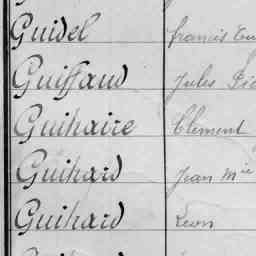 Guidel francis
Guiffaud Jules
Guihaire Clement
Guihard Jean Mie
Guihard Leon